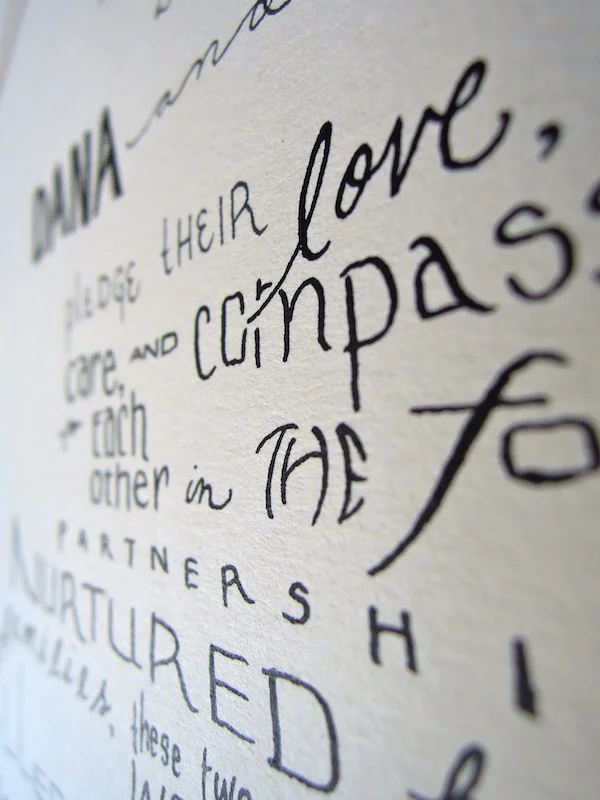 DANA and
pLEDGE tHEIR love,
care, AND compass
for Each
other in THE fo
PARTNERSHI
NURTURED
families, these two